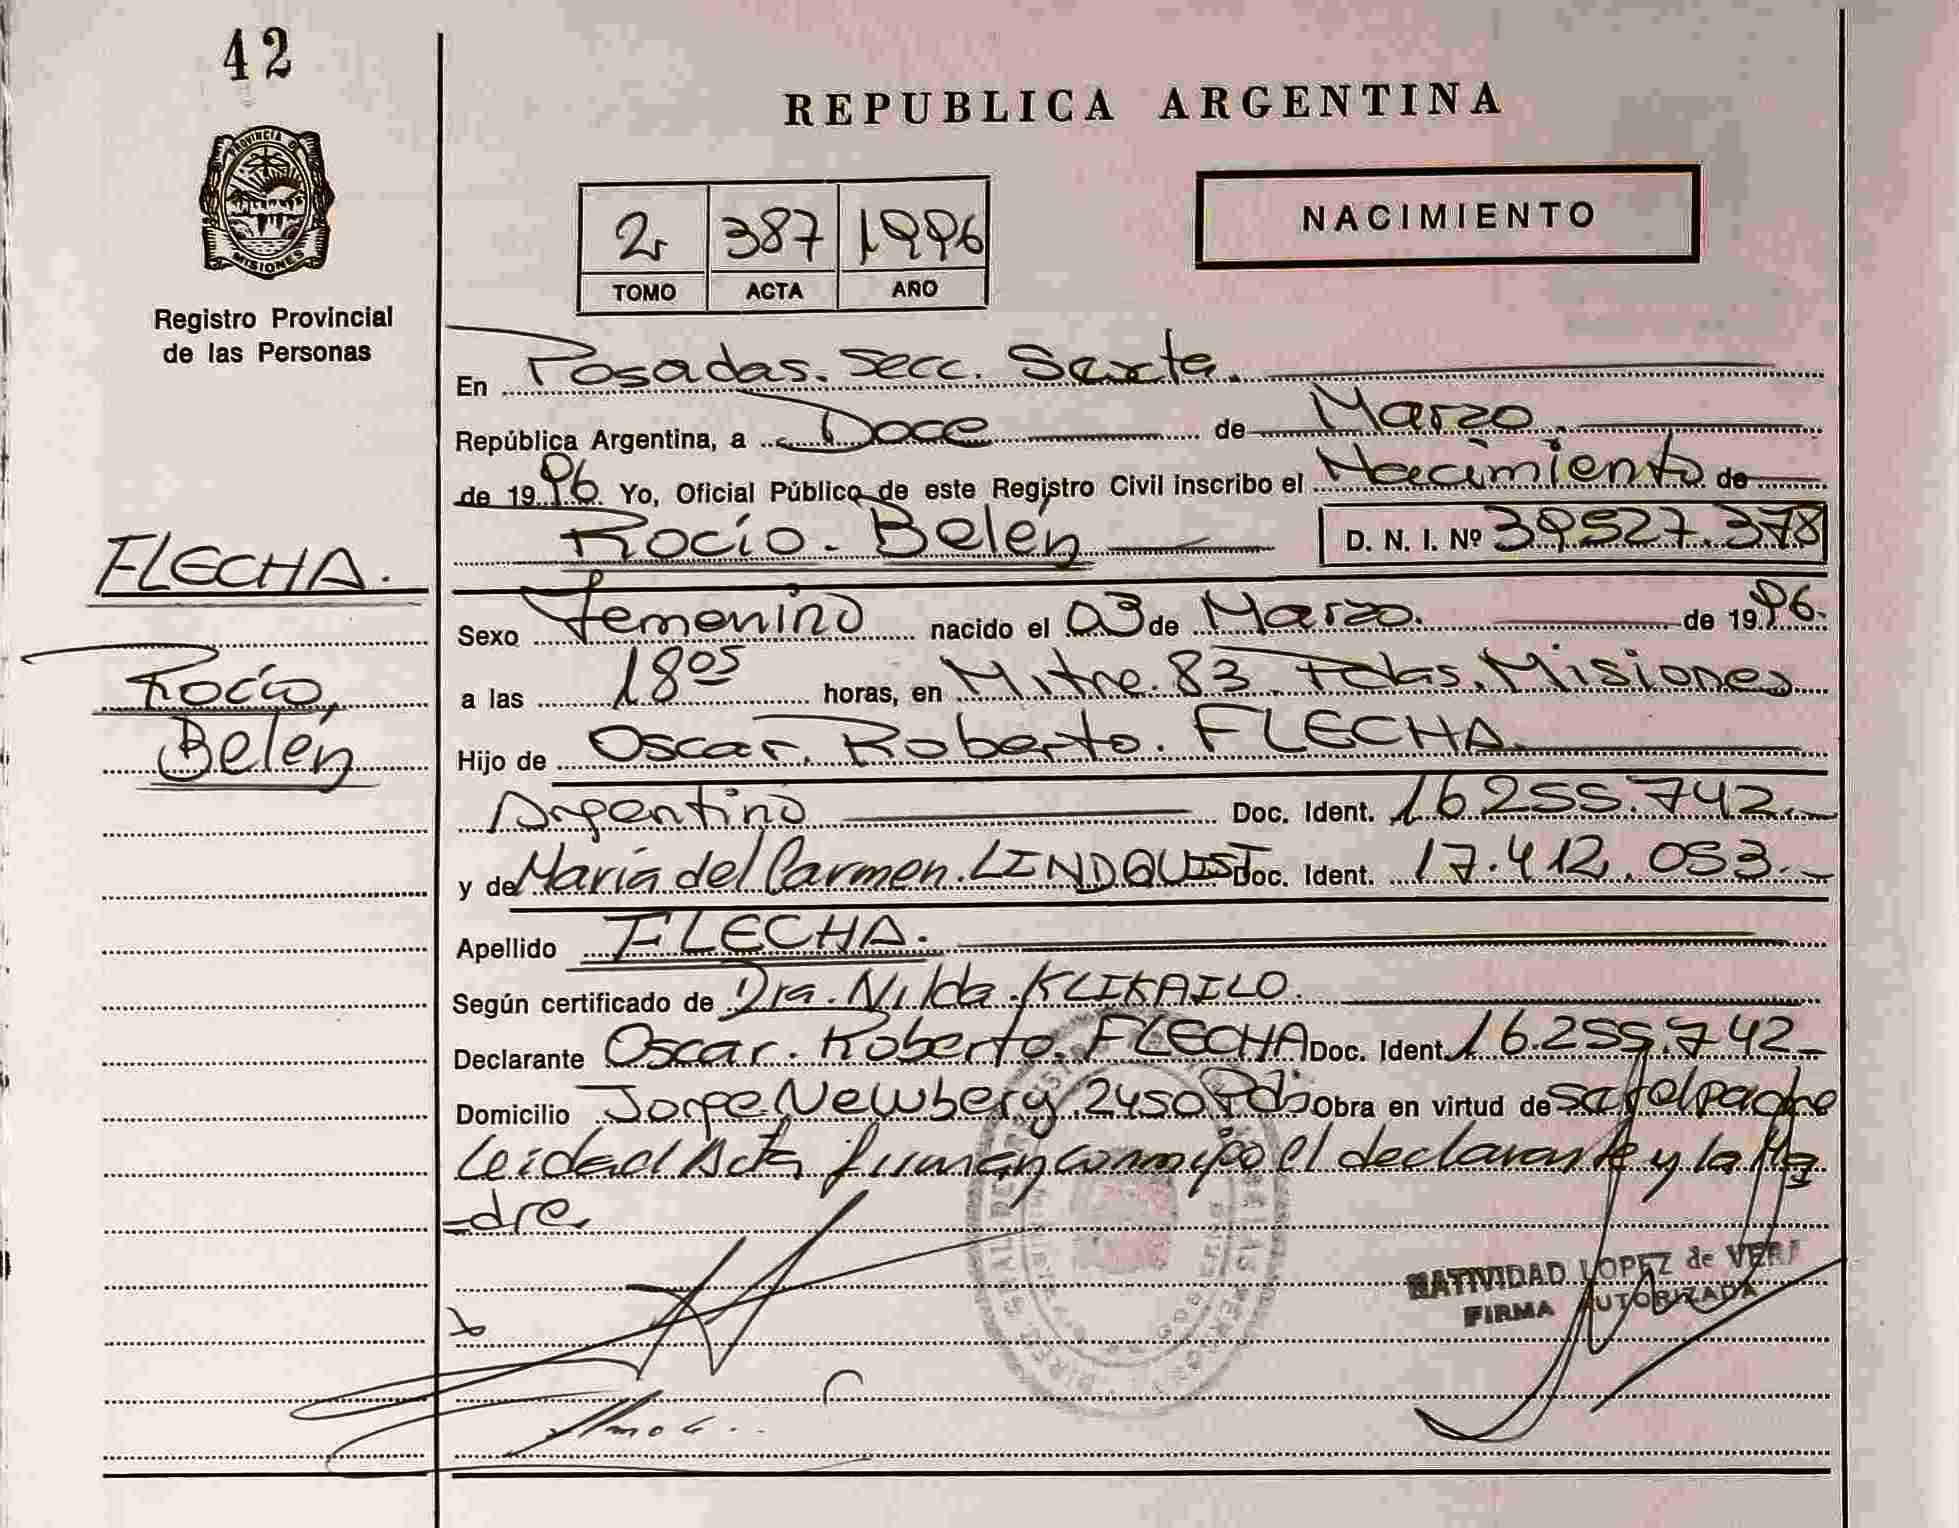 42
PROVINCIA D
MISIONES
Registro Provincial
de las Personas
FLECHA.
Rocío,
Belén
REPUBLICA ARGENTINA
NACIMIENTO
2 387 1996
TOMO ACTA AÑO
En Posadas. Secc. Sexta.
República Argentina, a Doce de Marzo.
de 1996 Yo, Oficial Público de este Registro Civil inscribo el Nacimiento de
Rocío. Belén D. N. I. Nº 39527.378
Sexo Femenino nacido el 03 de Marzo. de 1996.
a las 18 05 horas, en Mitre. 83 Pdas. Misiones
Hijo de Oscar. Roberto. FLECHA.
Argentino Doc. Ident. 16255.742.
y de María del Carmen. LINDQUIST Doc. Ident. 17.412.053.
Apellido FLECHA.
Según certificado de Dra. Nilda. KLIKAILO.
Declarante Oscar. Roberto. FLECHA Doc. Ident. 16.255.742
Domicilio Jorge Newbery 2450 Pds Obra en virtud de ser el padre
Leida el Acta firman conmigo el declarante y la Ma
dre.
NATIVIDAD LOPEZ de VERA
FIRMA AUTORIZADA